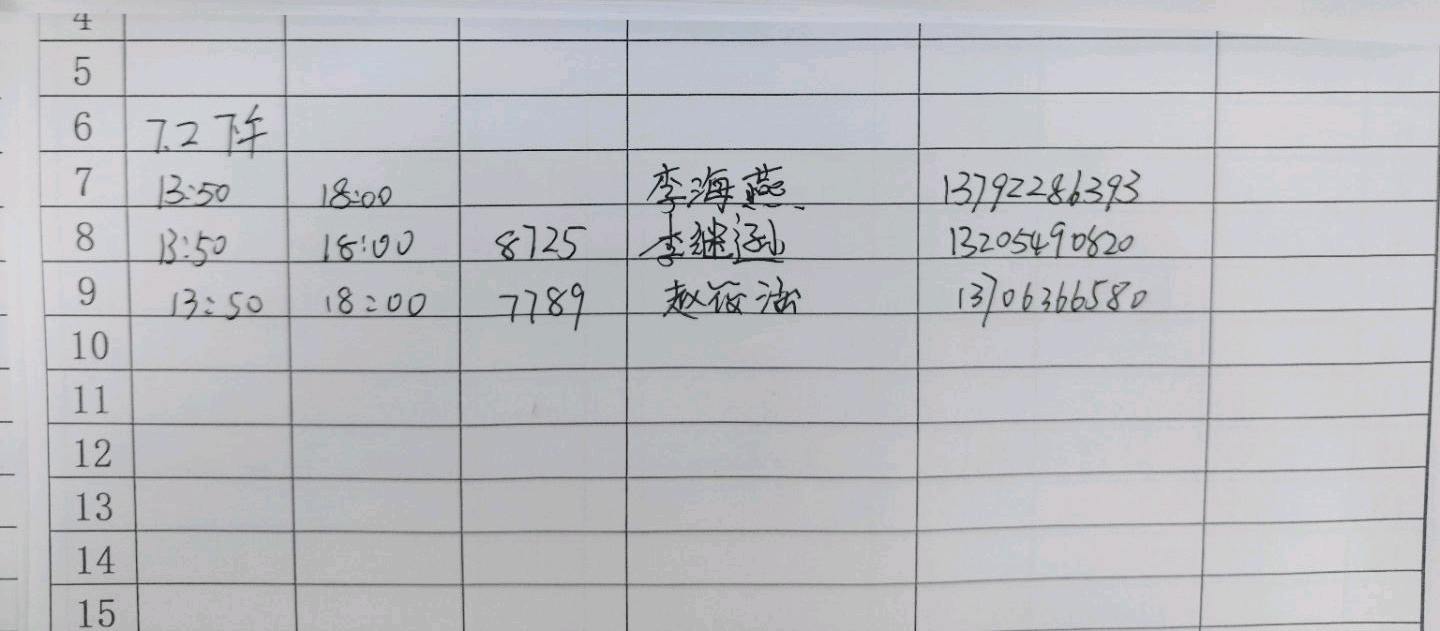 4
5
6 7.2 下午
7 13:50 18:00 李海燕 13792286393
8 13:50 18:00 8725 李继逊 13205490820
9 13:50 18:00 7789 赵 13706366580
10
11
12
13
14
15